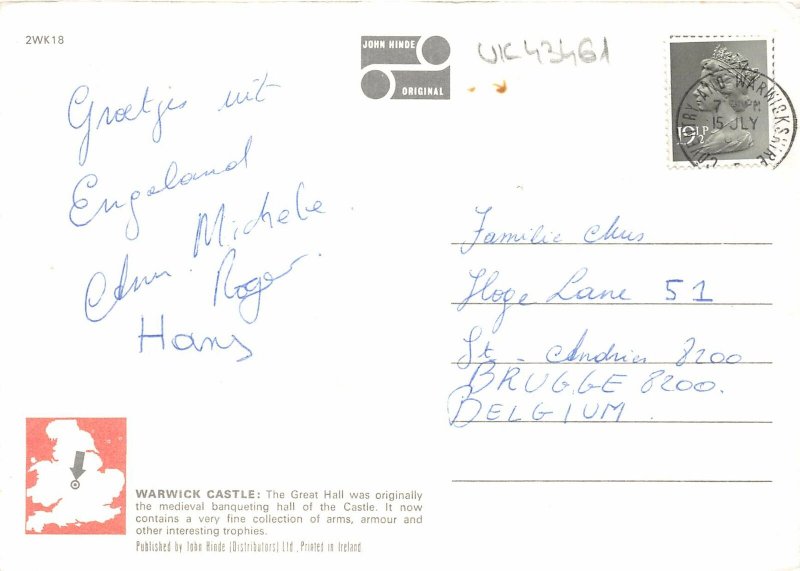 2WK18
JOHN HINDE
ORIGINAL
UK43461
19½P
COVENTRY AND WARWICKSHIRE
15 JLY
Groetjes uit
Engeland
Michele
Ann. Roger.
Hans
Familie
Hoge Lane 51
St - Andries 8200
BRUGGE 8200.
BELGIUM.
WARWICK CASTLE: The Great Hall was originally
the medieval banqueting hall of the Castle. It now
contains a very fine collection of arms, armour and
other interesting trophies.
Published by John Hinde (Distributors) Ltd., Printed in Ireland